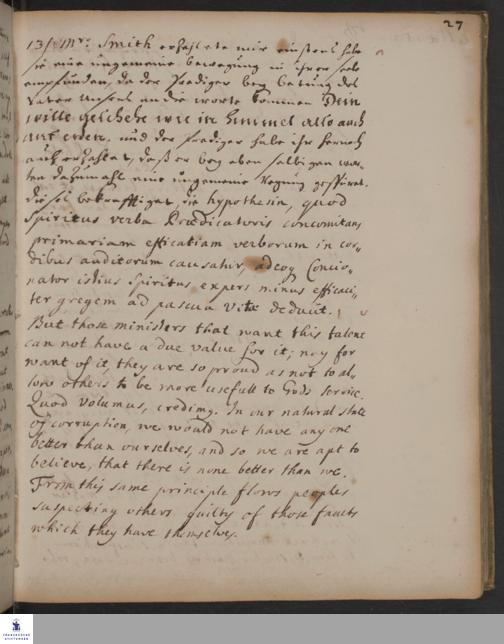 27
13/ Mrs. Smith erzahlete mir einstens habe
sie eine ungemeine bewegung in ihrer seele
empfunden, da der Prediger bey betung des
Vater Unsers an die worte kommen Dein
wille geschehe wie in himmel also auch
auf erden. und der Prediger habe ihr hernach
auch erzahlet, daß er bey eben selbigen wor-
ten dazumahl eine ungemeine Regung gespüret.
dieses bekrafftiget, die hypothesin, quod
Spiritus verba Prædicatoris concomitans
primariam efficatiam verborum in cor„
dibus auditorum causatur, adeoq Concio„
nator istius Spiritus expers minus efficaci„
ter gregem ad pascua Vitæ deducit.
But those ministers that want this talent
can not have a due value for it; nay for
want of it, they are so proud as not to al„
low others to be more usefull to Gods Service.
Quod volumus, credimg. In our natural state
of corruption, we would not have any one
better than ourselves, and so we are apt to
believe, that there is none better than we.
From this same principle flows peoples
suspecting others guilty of those faults
which they have themselves.
FRANCKESCHE
STIFTUNGEN